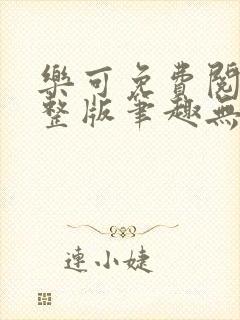 樂可免費閱
整版筆趣無
連小婕